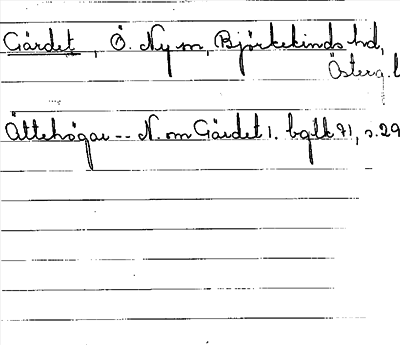 Gärdet, Ö. Ny sn, Björkekinds hd,
Österg. l
Ättehögar -- N. om Gärdet 1. bqtk 91, s. 29